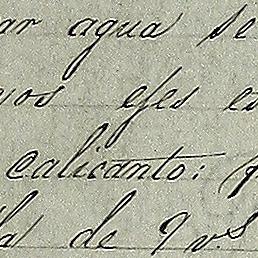 ar agua se
vos efes es
calicanto:
la de 9 v.s